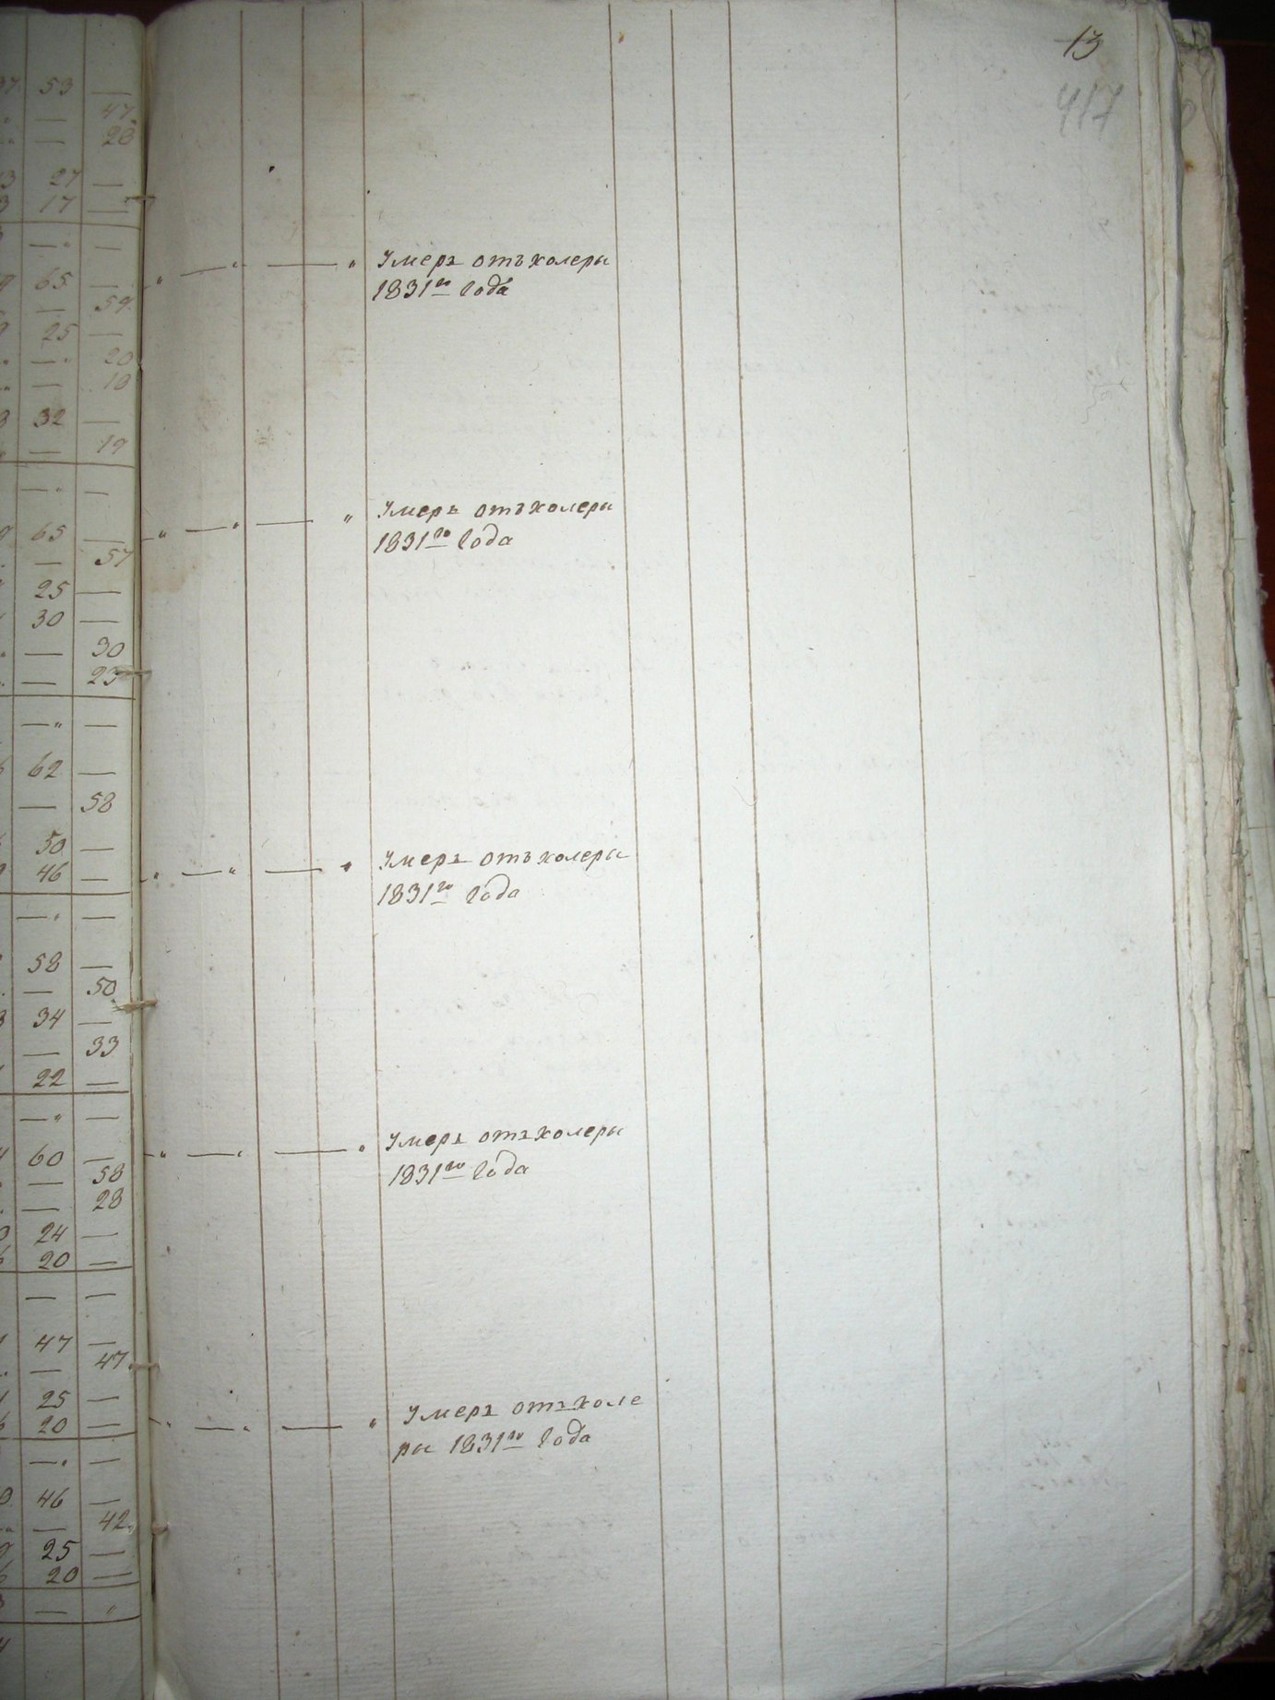 13
417
53 —
— 47
— 28
27 —
17 —
— —
65 —
— 59
25 —
— 20
— 18
32 —
— 19
— —
65 —
— 57
25 —
30 —
— 30
— 23
— —
62 —
— 58
50 —
46 —
— —
58 —
— 50
34 —
— 33
22 —
— —
60 —
— 58
— 28
24 —
20 —
— —
47 —
— 47
25 —
20 —
— —
46 —
— 42
25 —
20 —
Умеръ отъ холеры
1831го года
Умеръ отъ холеры
1831го года
Умеръ отъ холеры
1831го года
Умеръ отъ холеры
1831го года
Умеръ отъ холе
ры 1831го года